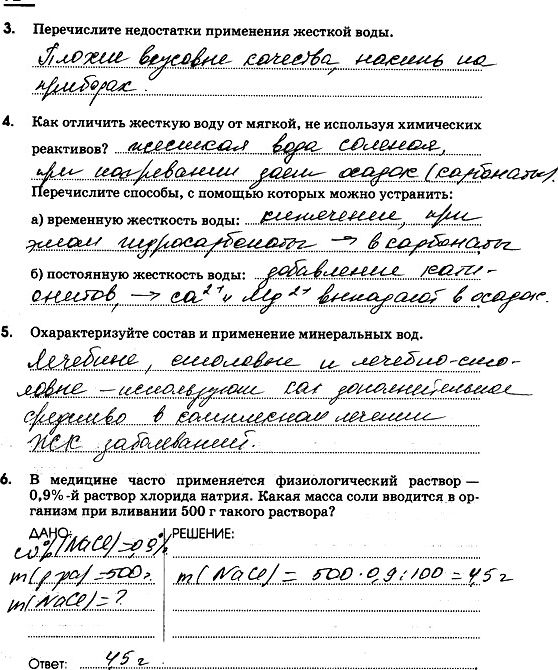 3. Перечислите недостатки применения жесткой воды.
Плохие вкусовые качества, накипь на
приборах.
4. Как отличить жесткую воду от мягкой, не используя химических
реактивов? жесткая вода соленая,
при нагревании дает осадок (карбонаты)
Перечислите способы, с помощью которых можно устранить:
а) временную жесткость воды: кипячение, при
этом гидрокарбонаты → в карбонаты
б) постоянную жесткость воды: добавление кати-
онитов, → Ca²⁺ и Mg²⁺ выпадают в осадок.
5. Охарактеризуйте состав и применение минеральных вод.
Лечебные, столовые и лечебно-сто-
ловые – используют как дополнительное
средство в комплексном лечении
ЖСК заболеваний.
6. В медицине часто применяется физиологический раствор —
0,9%-й раствор хлорида натрия. Какая масса соли вводится в ор-
ганизм при вливании 500 г такого раствора?
ДАНО: РЕШЕНИЕ:
(NaCl) = 0,9%
m(р-ра) = 500 г. m(NaCl) = 500 · 0,9 : 100 = 4,5 г
m(NaCl) = ?
Ответ: 4,5 г.